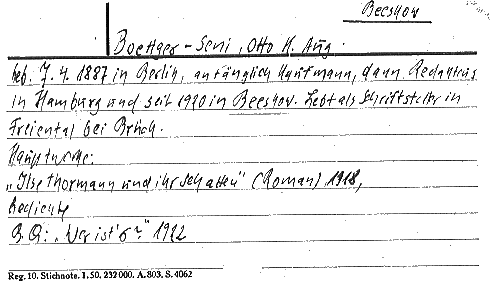 Beeskow
Boettger-Seni, Otto H. Aug.
geb. 7.4.1887 in Berlin, anfänglich Kaufmann, dann Redakteur
in Hamburg und seit 1920 in Beeskow. Lebt als Schriftsteller in
Freiental bei Brück.
Hauptwerke:
„Ilse Thormann und ihr Schatten" (Roman) 1918,
Gedichte
B.Q: „Wer ist's?" 1922
Reg. 10. Stichnote. 1. 50. 232000. A. 803. S. 4062